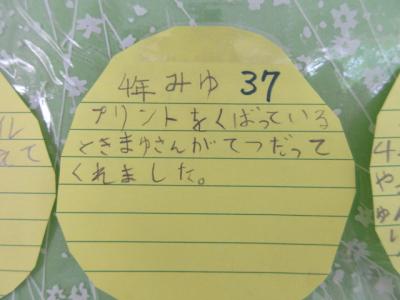 4年 みゆ 37
プリントをくばっている
ときまゆさんがてつだって
くれました。